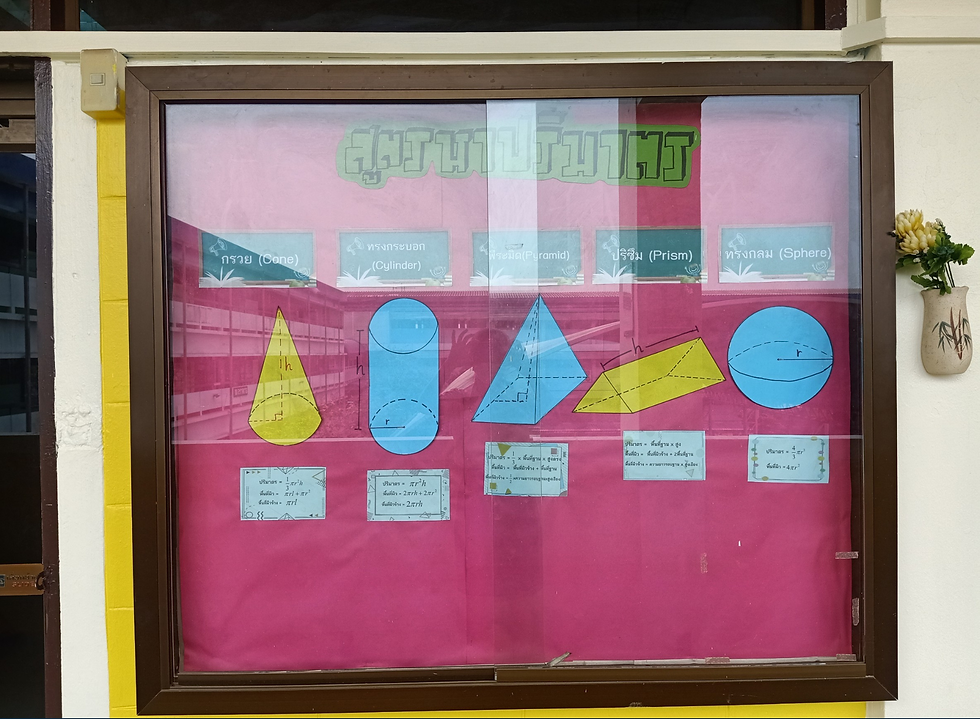 สูตรหาปริมาตร
กรวย (Cone)
ทรงกระบอก
(Cylinder)
พีระมิด(Pyramid)
ปริซึม (Prism)
ทรงกลม (Sphere)
h
h
r
h
r
ปริมาตร = 1/3 πr²h
พื้นที่ผิว = πrl + πr²
พื้นที่ผิวข้าง = πrl
ปริมาตร = πr²h
พื้นที่ผิว = 2πrh + 2πr²
พื้นที่ผิวข้าง = 2πrh
ปริมาตร = 1/3 x พื้นที่ฐาน x สูงตรง
พื้นที่ผิว = พื้นที่ผิวข้าง + พื้นที่ฐาน
ปริมาตร = พื้นที่ฐาน x สูง
พื้นที่ผิว = พื้นที่ผิวข้าง + 2พื้นที่ฐาน
พื้นที่ผิวข้าง = ความยาวรอบฐาน x สูง
ปริมาตร = 4/3 πr³
พื้นที่ผิว = 4πr²